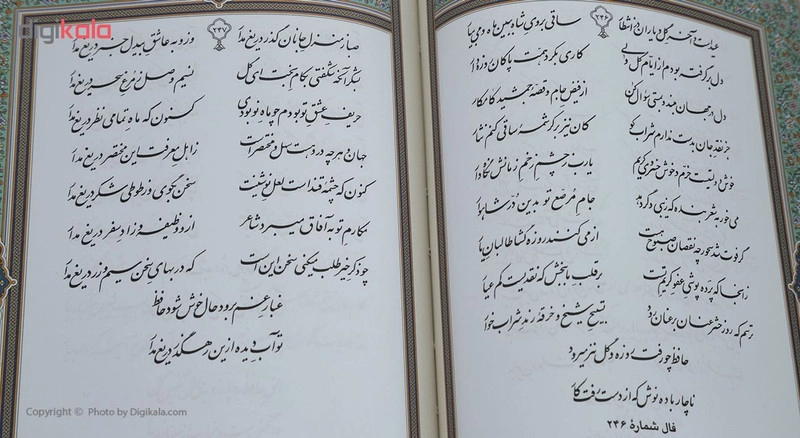 ۲۴۶
عید است و آخر گل و یاران در انتظار ساقی بروی شاه ببین ماه و می بیار
دل برگرفته بودم از ایام گل ولی کاری بکرد همت پاکان روزه دار
دل در جهان مبند و بمستی سؤال کن از فیض جام و قصهٔ جمشید کامکار
جز نقد جان بدست ندارم شراب کو کان نیز بر کرشمهٔ ساقی کنم نثار
خوش دولتیست خرم و خوش خسروی کریم یارب ز چشم زخم زمانش نگاه دار
می خور بشعر بنده که زیبی دگر دهد جام مرصع تو بدین درّ شاهوار
گر فوت شد سحور چه نقصان صبوح هست از می کنند روزه گشا طالبان یار
زانجا که پرده پوشی عفو کریم تست بر قلب ما ببخش که نقدیست کم عیار
ترسم که روز حشر عنان بر عنان رود تسبیح شیخ و خرقهٔ رند شراب خوار
حافظ چو رفت روزه و گل نیز میرود
ناچار باده نوش که از دست رفت کار
فال شمارهٔ ۲۴۶
۲۴۷
صبا ز منزل جانان گذر دریغ مدار وزو به عاشق بیدل خبر دریغ مدار
بشکر آنکه شکفتی بکام بخت ای گل نسیم وصل ز مرغ سحر دریغ مدار
حریف عشق تو بودم چو ماه نو بودی کنون که ماه تمامی نظر دریغ مدار
جهان و هرچه در و هست سهل و مختصر است ز اهل معرفت این مختصر دریغ مدار
کنون که چشمهٔ قند است لعل نوشینت سخن بگوی و ز طوطی شکر دریغ مدار
مکارم تو به آفاق میبرد شاعر ازو وظیفه و زاد سفر دریغ مدار
چو ذکر خیر طلب میکنی سخن این است که در بهای سخن سیم و زر دریغ مدار
غبار غم برود حال خوش شود حافظ
تو آب دیده ازین رهگذر دریغ مدار
digikala
Copyright © Photo by Digikala.com